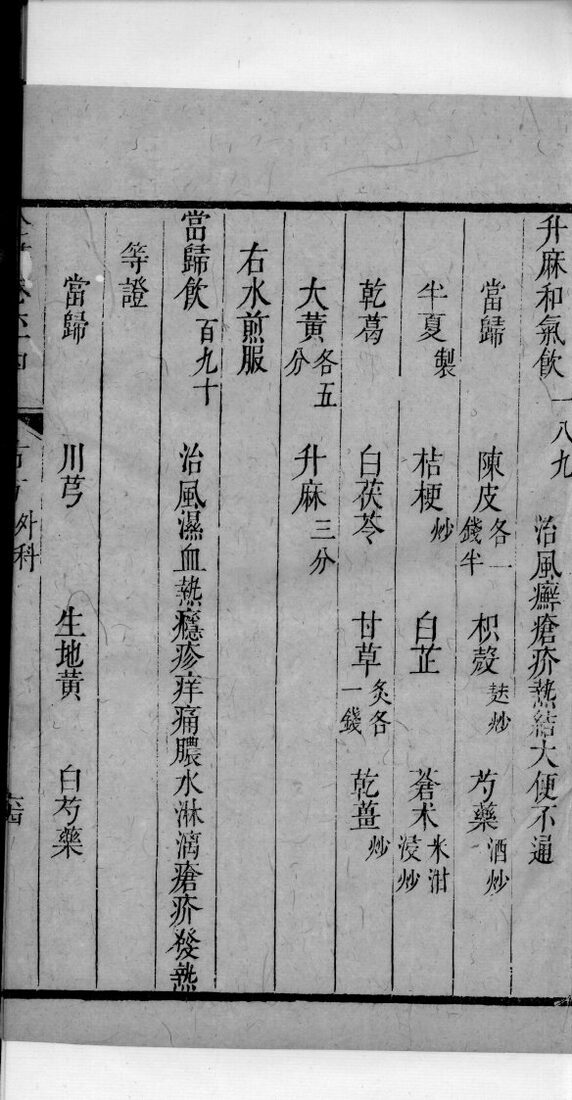 升麻和氣飲一八九 治風癬瘡疥熱結大便不通
當歸 陳皮各一錢半 枳殼麸炒 芍藥酒炒
半夏製 桔梗炒 白芷 蒼术米泔浸炒
乾葛 白茯苓 甘草炙各一錢 乾薑炒
大黃各五分 升麻三分
右水煎服
當歸飲百九十 治風濕血熱癮疹痒痛膿水淋漓瘡疥發熱
等證
當歸 川芎 生地黃 白芍藥
外科